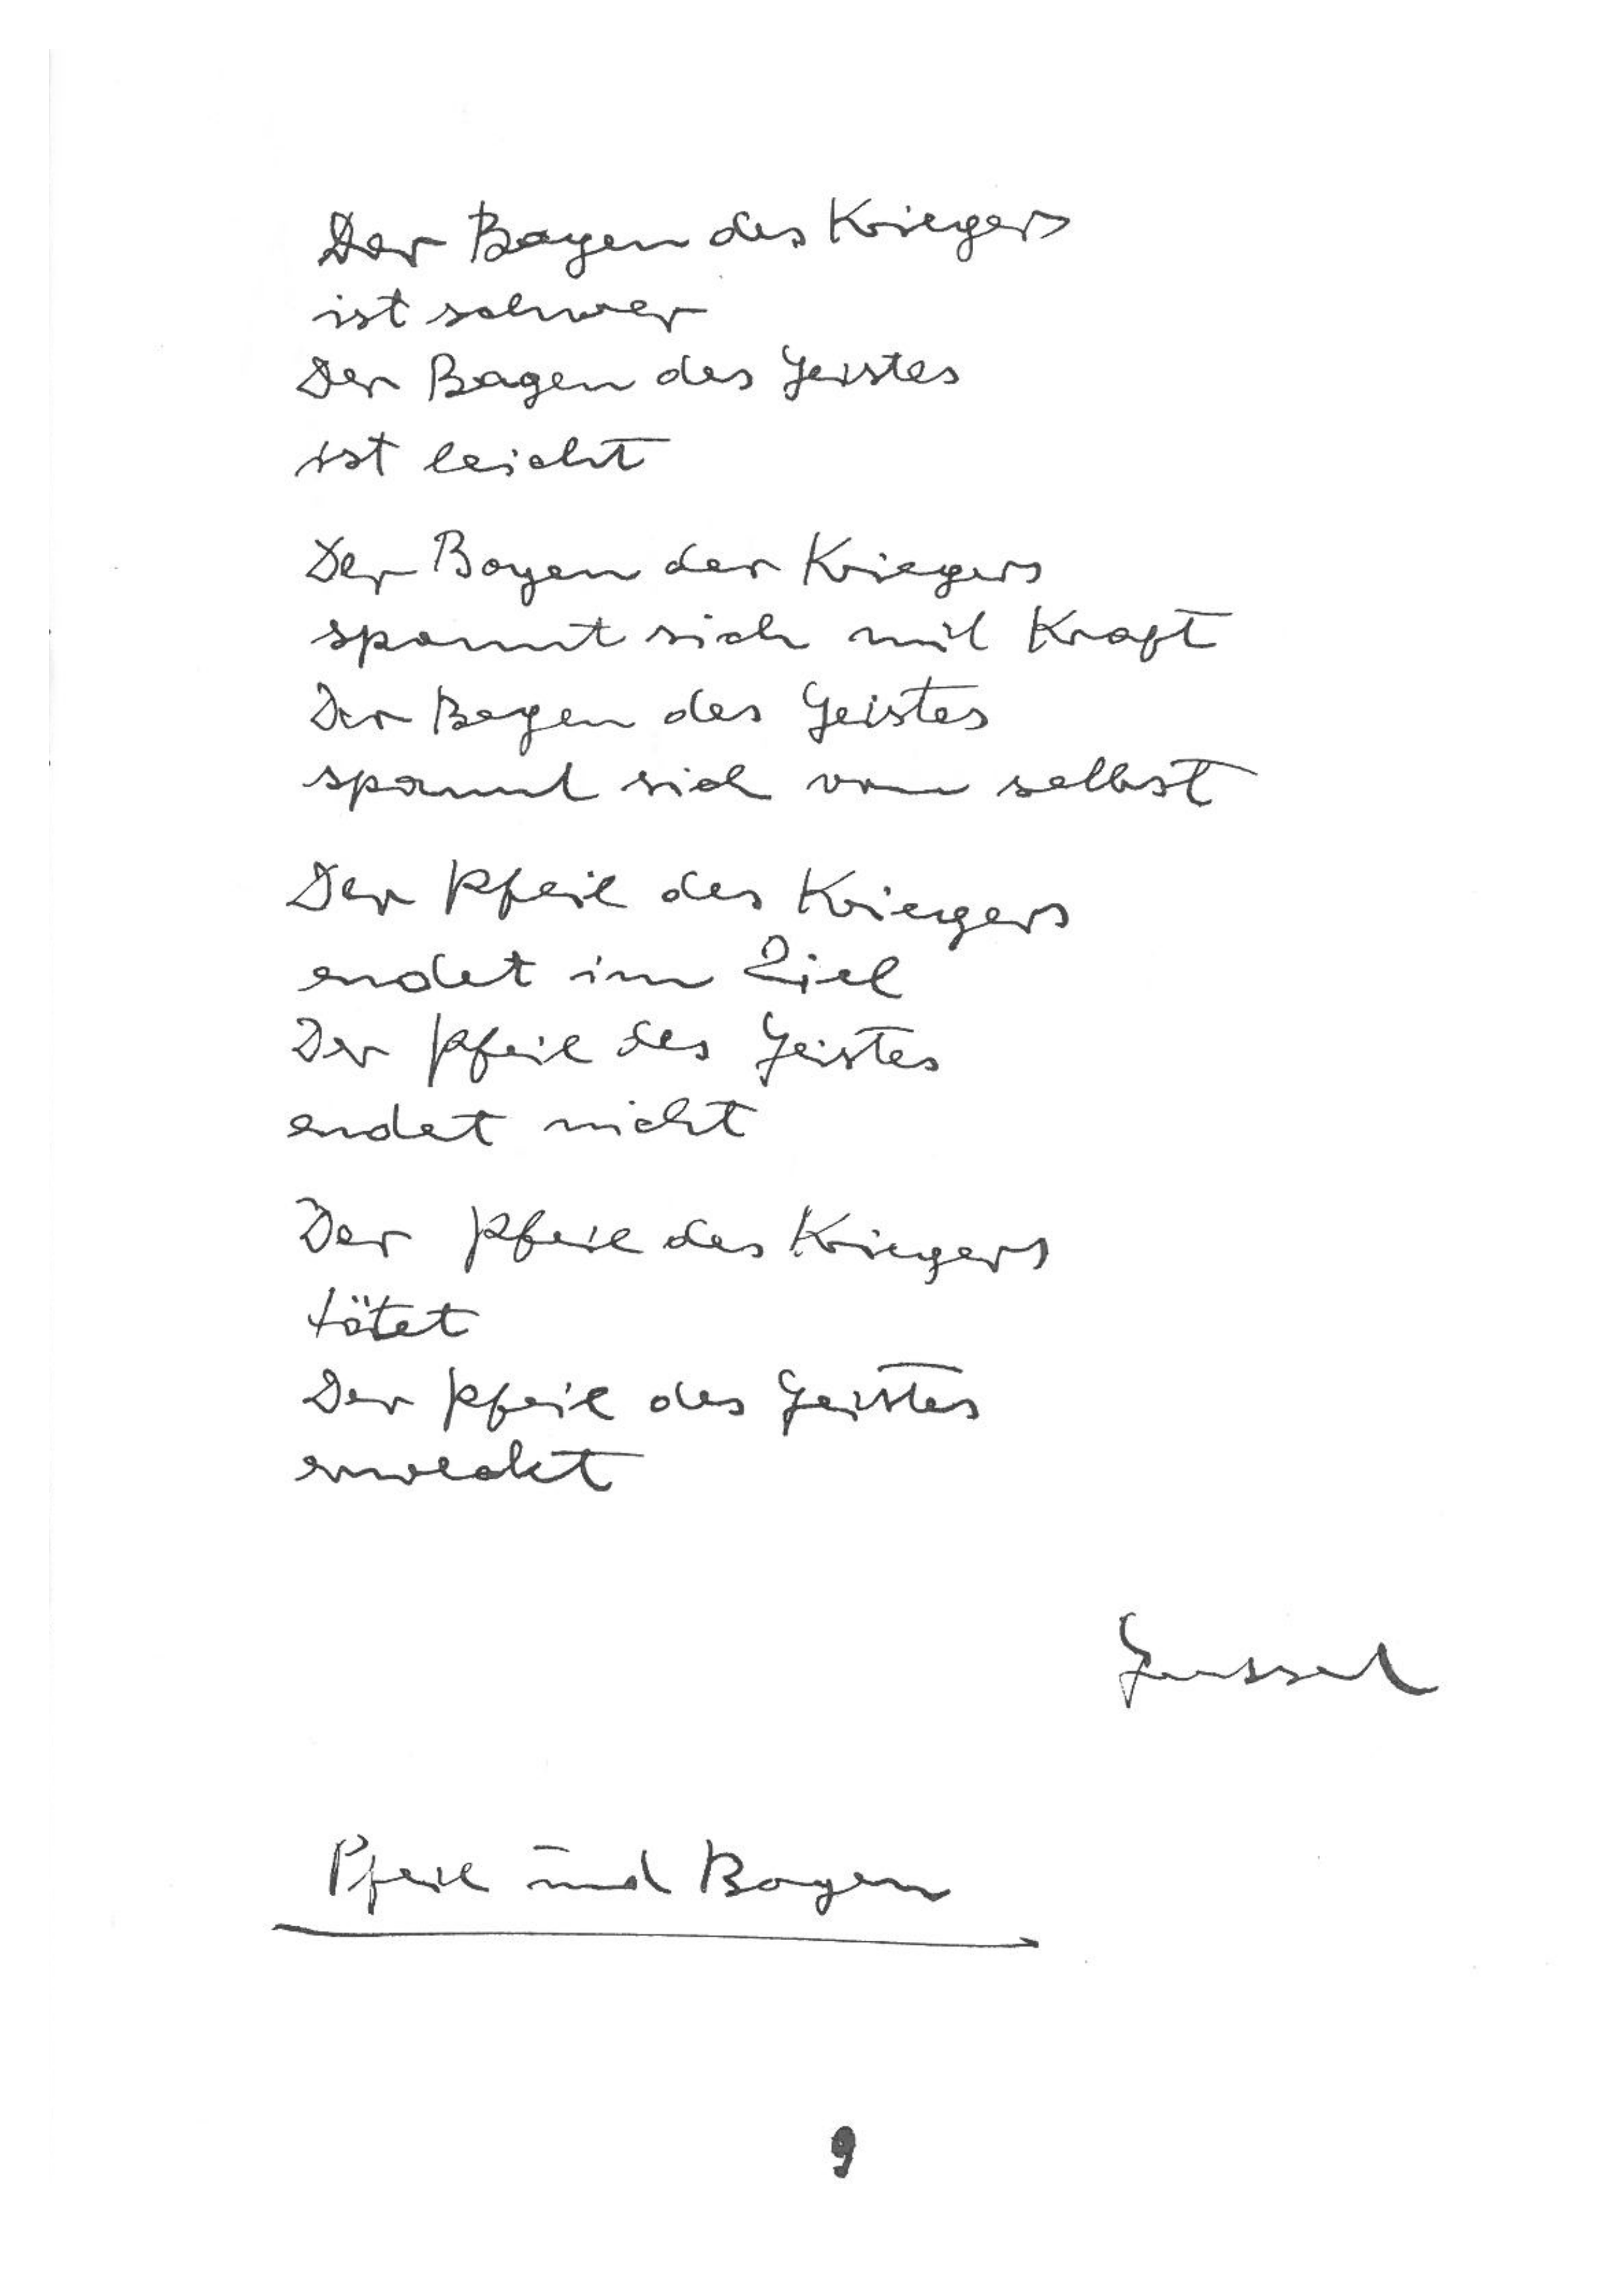 Der Bogen des Kriegers
ist schwer
Der Bogen des Geistes
ist leicht
Der Bogen des Kriegers
spannt sich mit Kraft
Der Bogen des Geistes
spannt sich von selbst
Der Pfeil des Kriegers
endet im Ziel
Der Pfeil des Geistes
endet nicht
Der Pfeil des Kriegers
tötet
Der Pfeil des Geistes
erweckt
Pfeil und Bogen
9